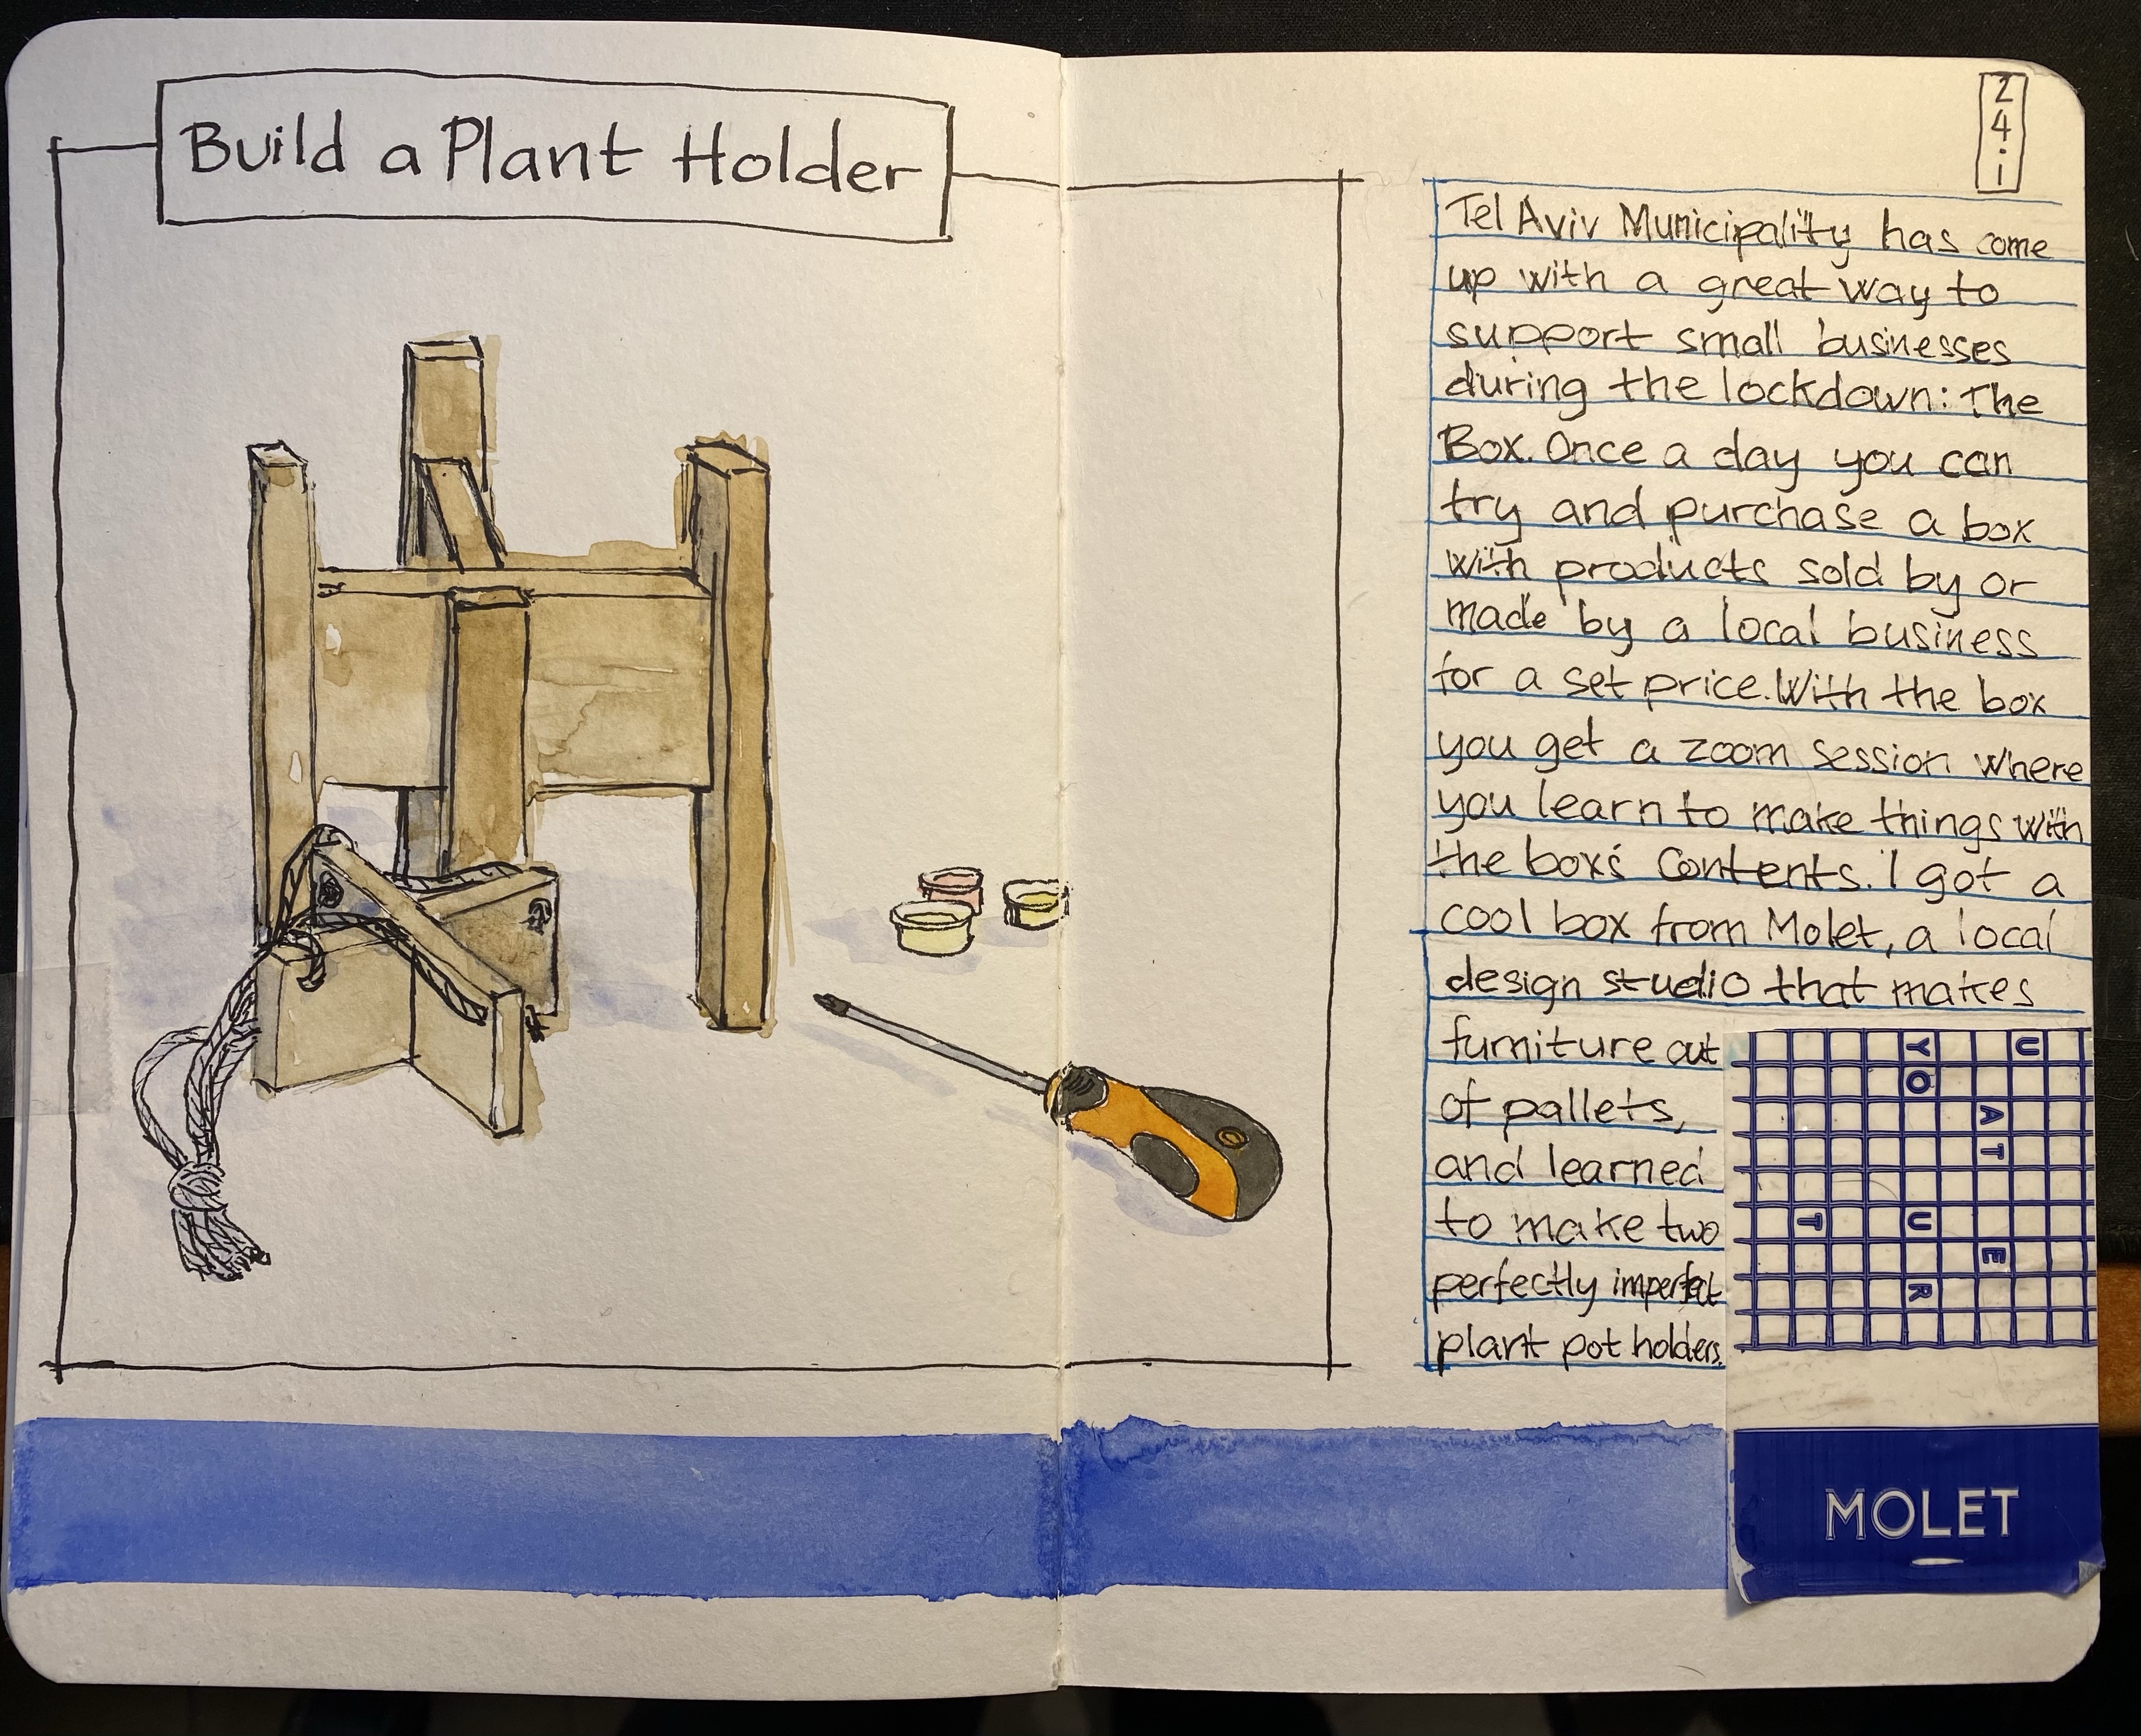 Build a Plant Holder
24.1
Tel Aviv Municipality has come
up with a great way to
support small businesses
during the lockdown: The
Box. Once a day you can
try and purchase a box
with products sold by or
made by a local business
for a set price. With the box
you get a zoom session where
you learn to make things with
the box's contents. I got a
cool box from Molet, a local
design studio that makes
furniture out
of pallets,
and learned
to make two
perfectly imperfect
plant pot holders.
U
A T E
Y O U R
T
MOLET